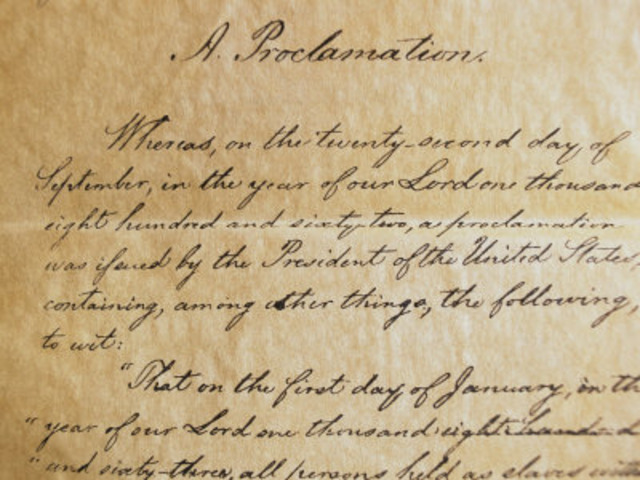 A. Proclamation.
Whereas, on the twenty-second day of
September, in the year of our Lord one thousand
eight hundred and sixty-two, a proclamation
was issued by the President of the United States,
containing, among other things, the following,
to wit:
"That on the first day of January, in the
" year of our Lord one thousand eight hundred
" and sixty-three, all persons held as slaves within